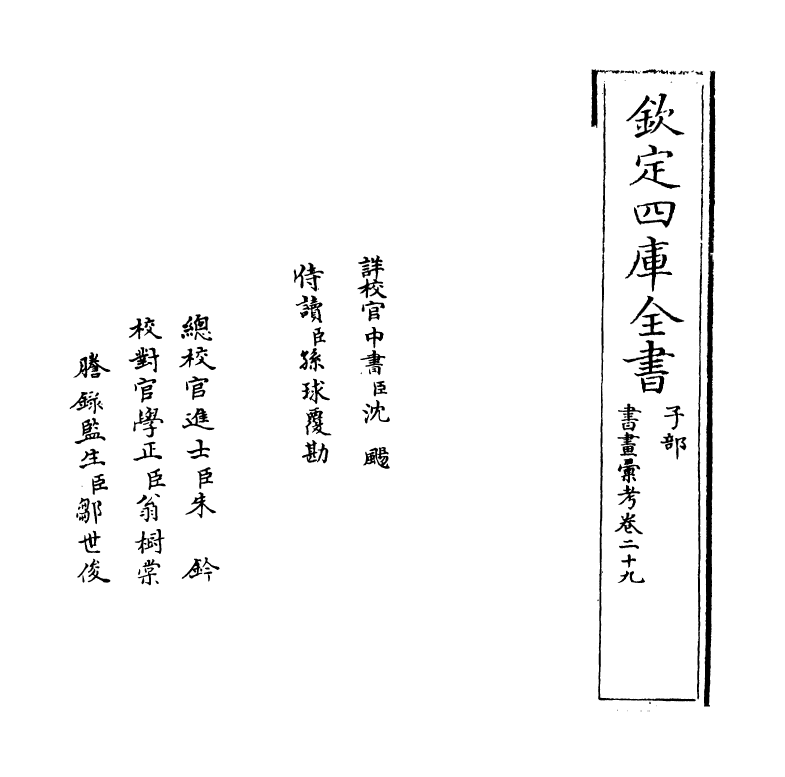 欽定四庫全書
子部
書畫彙考卷二十九
詳校官中書臣沈颺
侍讀臣孫球覆勘
總校官進士臣朱鈐
校對官學正臣翁樹棠
謄錄監生臣鄒世俊